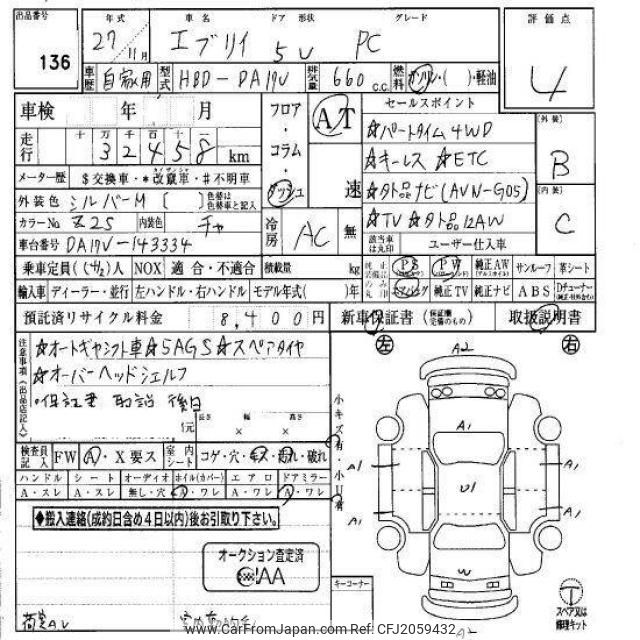 出品番号 年式 車名 ドア 形状 グレード 評価点
136 27 11月 エブリイ 5V PC 4
車歴 自家用 型式 HBD-DA17V 排気量 660 c.c. 燃料 ガソリン・( )・軽油
車検 年 月 フロア・コラム・ダッシュ AT 速 セールスポイント
☆パートタイム4WD
☆キーレス ☆ETC
☆外品ナビ(AVN-G05)
☆TV ☆外品12AW
(外装) B
(内装) C
走行 十 万 千 百 十 一
32458 km
メーター歴 $交換車・*改竄車・#不明車
外装色 シルバーM [ ] 色替は色替車と記入
カラーNo Z2S 内装色 チャ 冷房 AC 無
車台番号 DA17V-143334 該当車は丸印 ユーザー仕入車
乗車定員(4/2)人 NOX 適合・不適合 積載量 kg PS PW 純正AW サンルーフ 革シート
輸入車 ディーラー・並行 左ハンドル・右ハンドル モデル年式( )年 エアバッグ 純正TV 純正ナビ ABS Dチューナー
預託済リサイクル料金 8,400円 新車保証書 (保証欄完備のもの) 取扱説明書
注意事項(出品店記入)
☆オートギヤシフト車☆5AGS☆スペアタイヤ
☆オーバーヘッドシェルフ
・保証書 取説 後日
長さ 幅 高さ
× ×
小キズ有・小凹有
検査員記入 FW A・X要ス 室内シート コゲ・穴・キズ・汚れ・破れ
ハンドル シート オーディオ ホイル(カバー) エアロ ドアミラー
A・スレ A・スレ 無し・穴 A・ワレ A・ワレ A・ワレ
◆搬入連絡(成約日含め4日以内)後お引取り下さい。
オークション査定済
AA
キーコーナー
左 右
A2
A1
A1 A1
U1
A1 A1
W
A2
スペア又は修理キット
荷室AV
www.CarFromJapan.com Ref: CFJ2059432